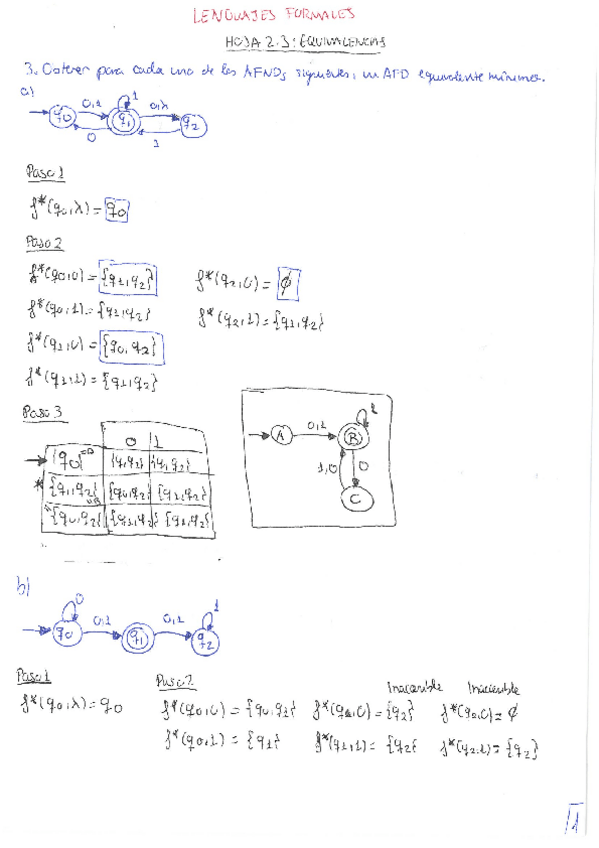 LENGUAJES FORMALES
HOJA 2.3: EQUIVALENCIAS
3. Obtener para cada uno de los AFNDs siguientes, un AFD equivalente mínimo.
a)
0,1 1 0,λ
q0 q1 q2
0 1
Paso 1
f*(q0,λ) = q0
Paso 2
f*(q0,0) = {q1,q2} f*(q2,0) = ∅
f*(q0,1) = {q1,q2} f*(q2,1) = {q1,q2}
f*(q1,0) = {q0,q2}
f*(q1,1) = {q1,q2}
Paso 3
0 1
{q0} {q1,q2} {q1,q2}
* {q1,q2} {q0,q2} {q1,q2}
{q0,q2} {q1,q2} {q1,q2}
A 0,1 B 1
1,0 0
C
b)
0 0,1 0,1 1
q0 q1 q2
Paso 1 Paso 2 Inaccesible Inaccesible
f*(q0,λ) = q0 f*(q0,0) = {q0,q2} f*(q1,0) = {q2} f*(q2,0) = ∅
f*(q0,1) = {q1} f*(q1,1) = {q2} f*(q2,1) = {q2}
1